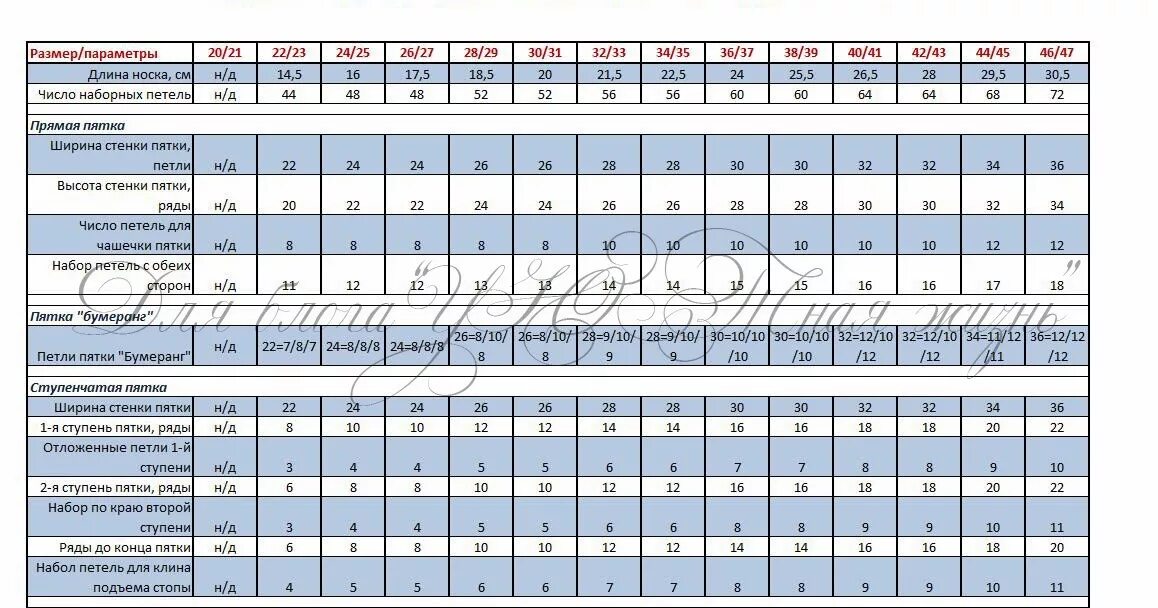 Размер/параметры 20/21 22/23 24/25 26/27 28/29 30/31 32/33 34/35 36/37 38/39 40/41 42/43 44/45 46/47
Длина носка, см н/д 14,5 16 17,5 18,5 20 21,5 22,5 24 25,5 26,5 28 29,5 30,5
Число наборных петель н/д 44 48 48 52 52 56 56 60 60 64 64 68 72
Прямая пятка
Ширина стенки пятки,
петли н/д 22 24 24 26 26 28 28 30 30 32 32 34 36
Высота стенки пятки,
ряды н/д 20 22 22 24 24 26 26 28 28 30 30 32 34
Число петель для
чашечки пятки н/д 8 8 8 8 8 10 10 10 10 10 10 12 12
Набор петель с обеих
сторон н/д 11 12 12 13 13 14 14 15 15 16 16 17 18
Для блога "УЮТная жизнь"
Пятка "бумеранг"
26=8/10/ 26=8/10/ 28=9/10/ 28=9/10/ 30=10/10 30=10/10 32=12/10 32=12/10 34=11/12 36=12/12
Петли пятки "Бумеранг" н/д 22=7/8/7 24=8/8/8 24=8/8/8 8 8 9 9 /10 /10 /12 /12 /11 /12
Ступенчатая пятка
Ширина стенки пятки н/д 22 24 24 26 26 28 28 30 30 32 32 34 36
1-я ступень пятки, ряды н/д 8 10 10 12 12 14 14 16 16 18 18 20 22
Отложенные петли 1-й
ступени н/д 3 4 4 5 5 6 6 7 7 8 8 9 10
2-я ступень пятки, ряды н/д 6 8 8 10 10 12 12 16 16 18 18 20 22
Набор по краю второй
ступени н/д 3 4 4 5 5 6 6 8 8 9 9 10 11
Ряды до конца пятки н/д 6 8 8 10 10 12 12 14 14 16 16 18 20
Набол петель для клина
подъема стопы н/д 4 5 5 6 6 7 7 8 8 9 9 10 11